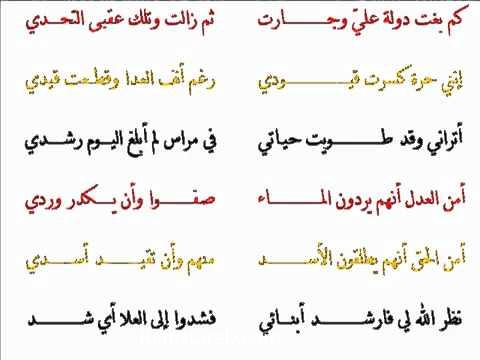 كم بغت دولة عليّ وجارت ثم زالت وتلك عقبى التحدي
إنني حرة كسرت قيودي رغم أنف العدا وقطعت قيدي
أتراني وقد طويت حياتي في مراس لم أبلغ اليوم رشدي
أمن العدل أنهم يردون الماء صفوا وأن يكدر وردي
أمن الحق أنهم يطلقون الأسد منهم وأن تقيد أسدي
نظر الله لي فارشد أبنائي فشدوا إلى العلا أي شد